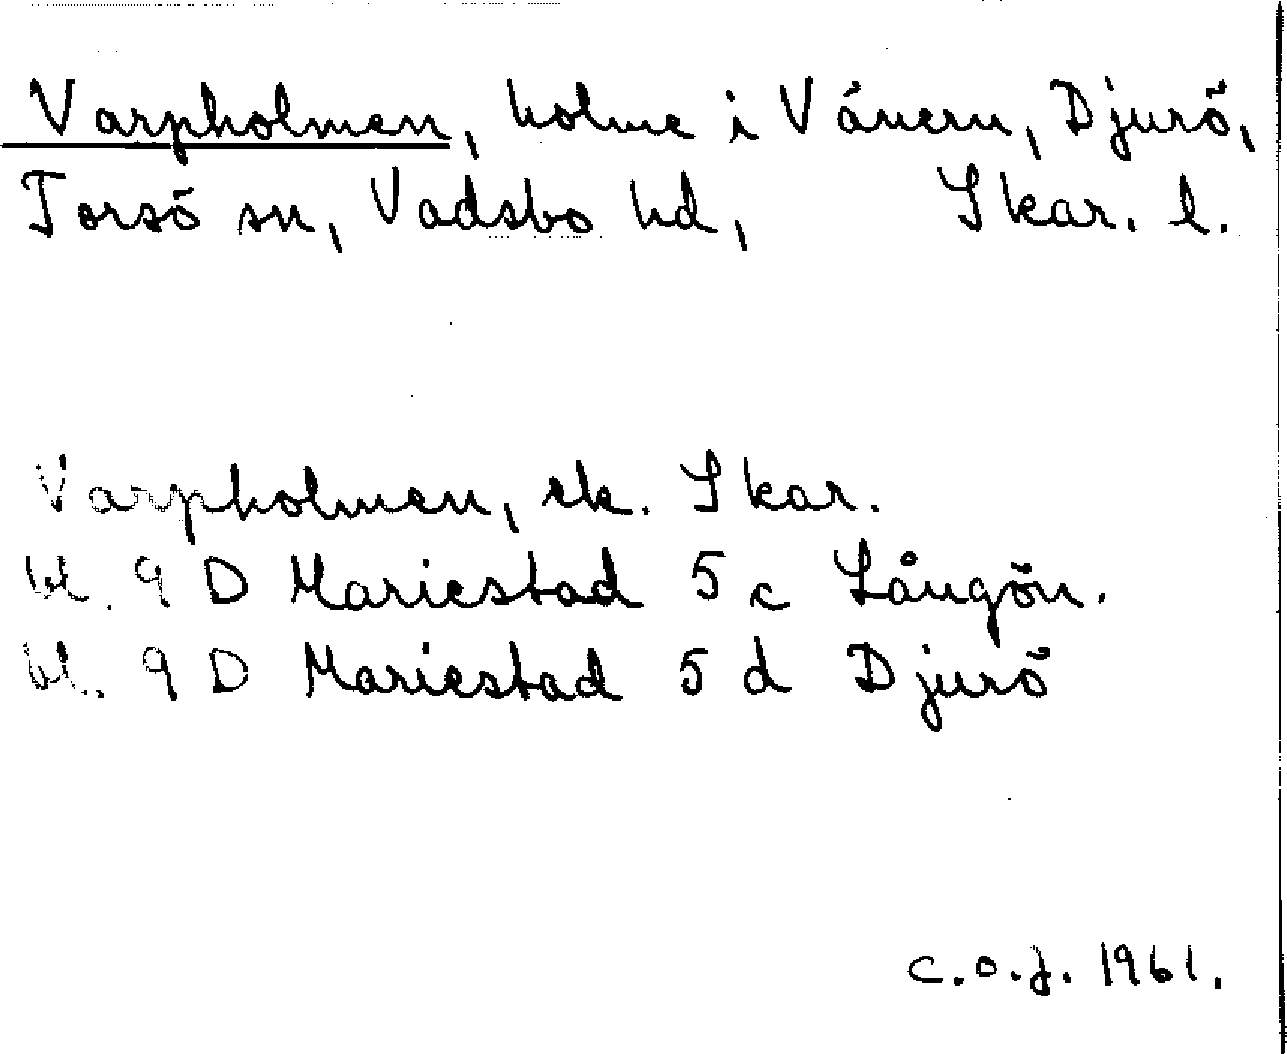 Varpholmen, holme i Vänern, Djurö,
Torsö sn, Vadsbo hd, Skar. l.
Varpholmen, ek. Skar.
bl. 9 D Mariestad 5 c Långön.
bl. 9 D Mariestad 5 d Djurö
C.O.J. 1961.